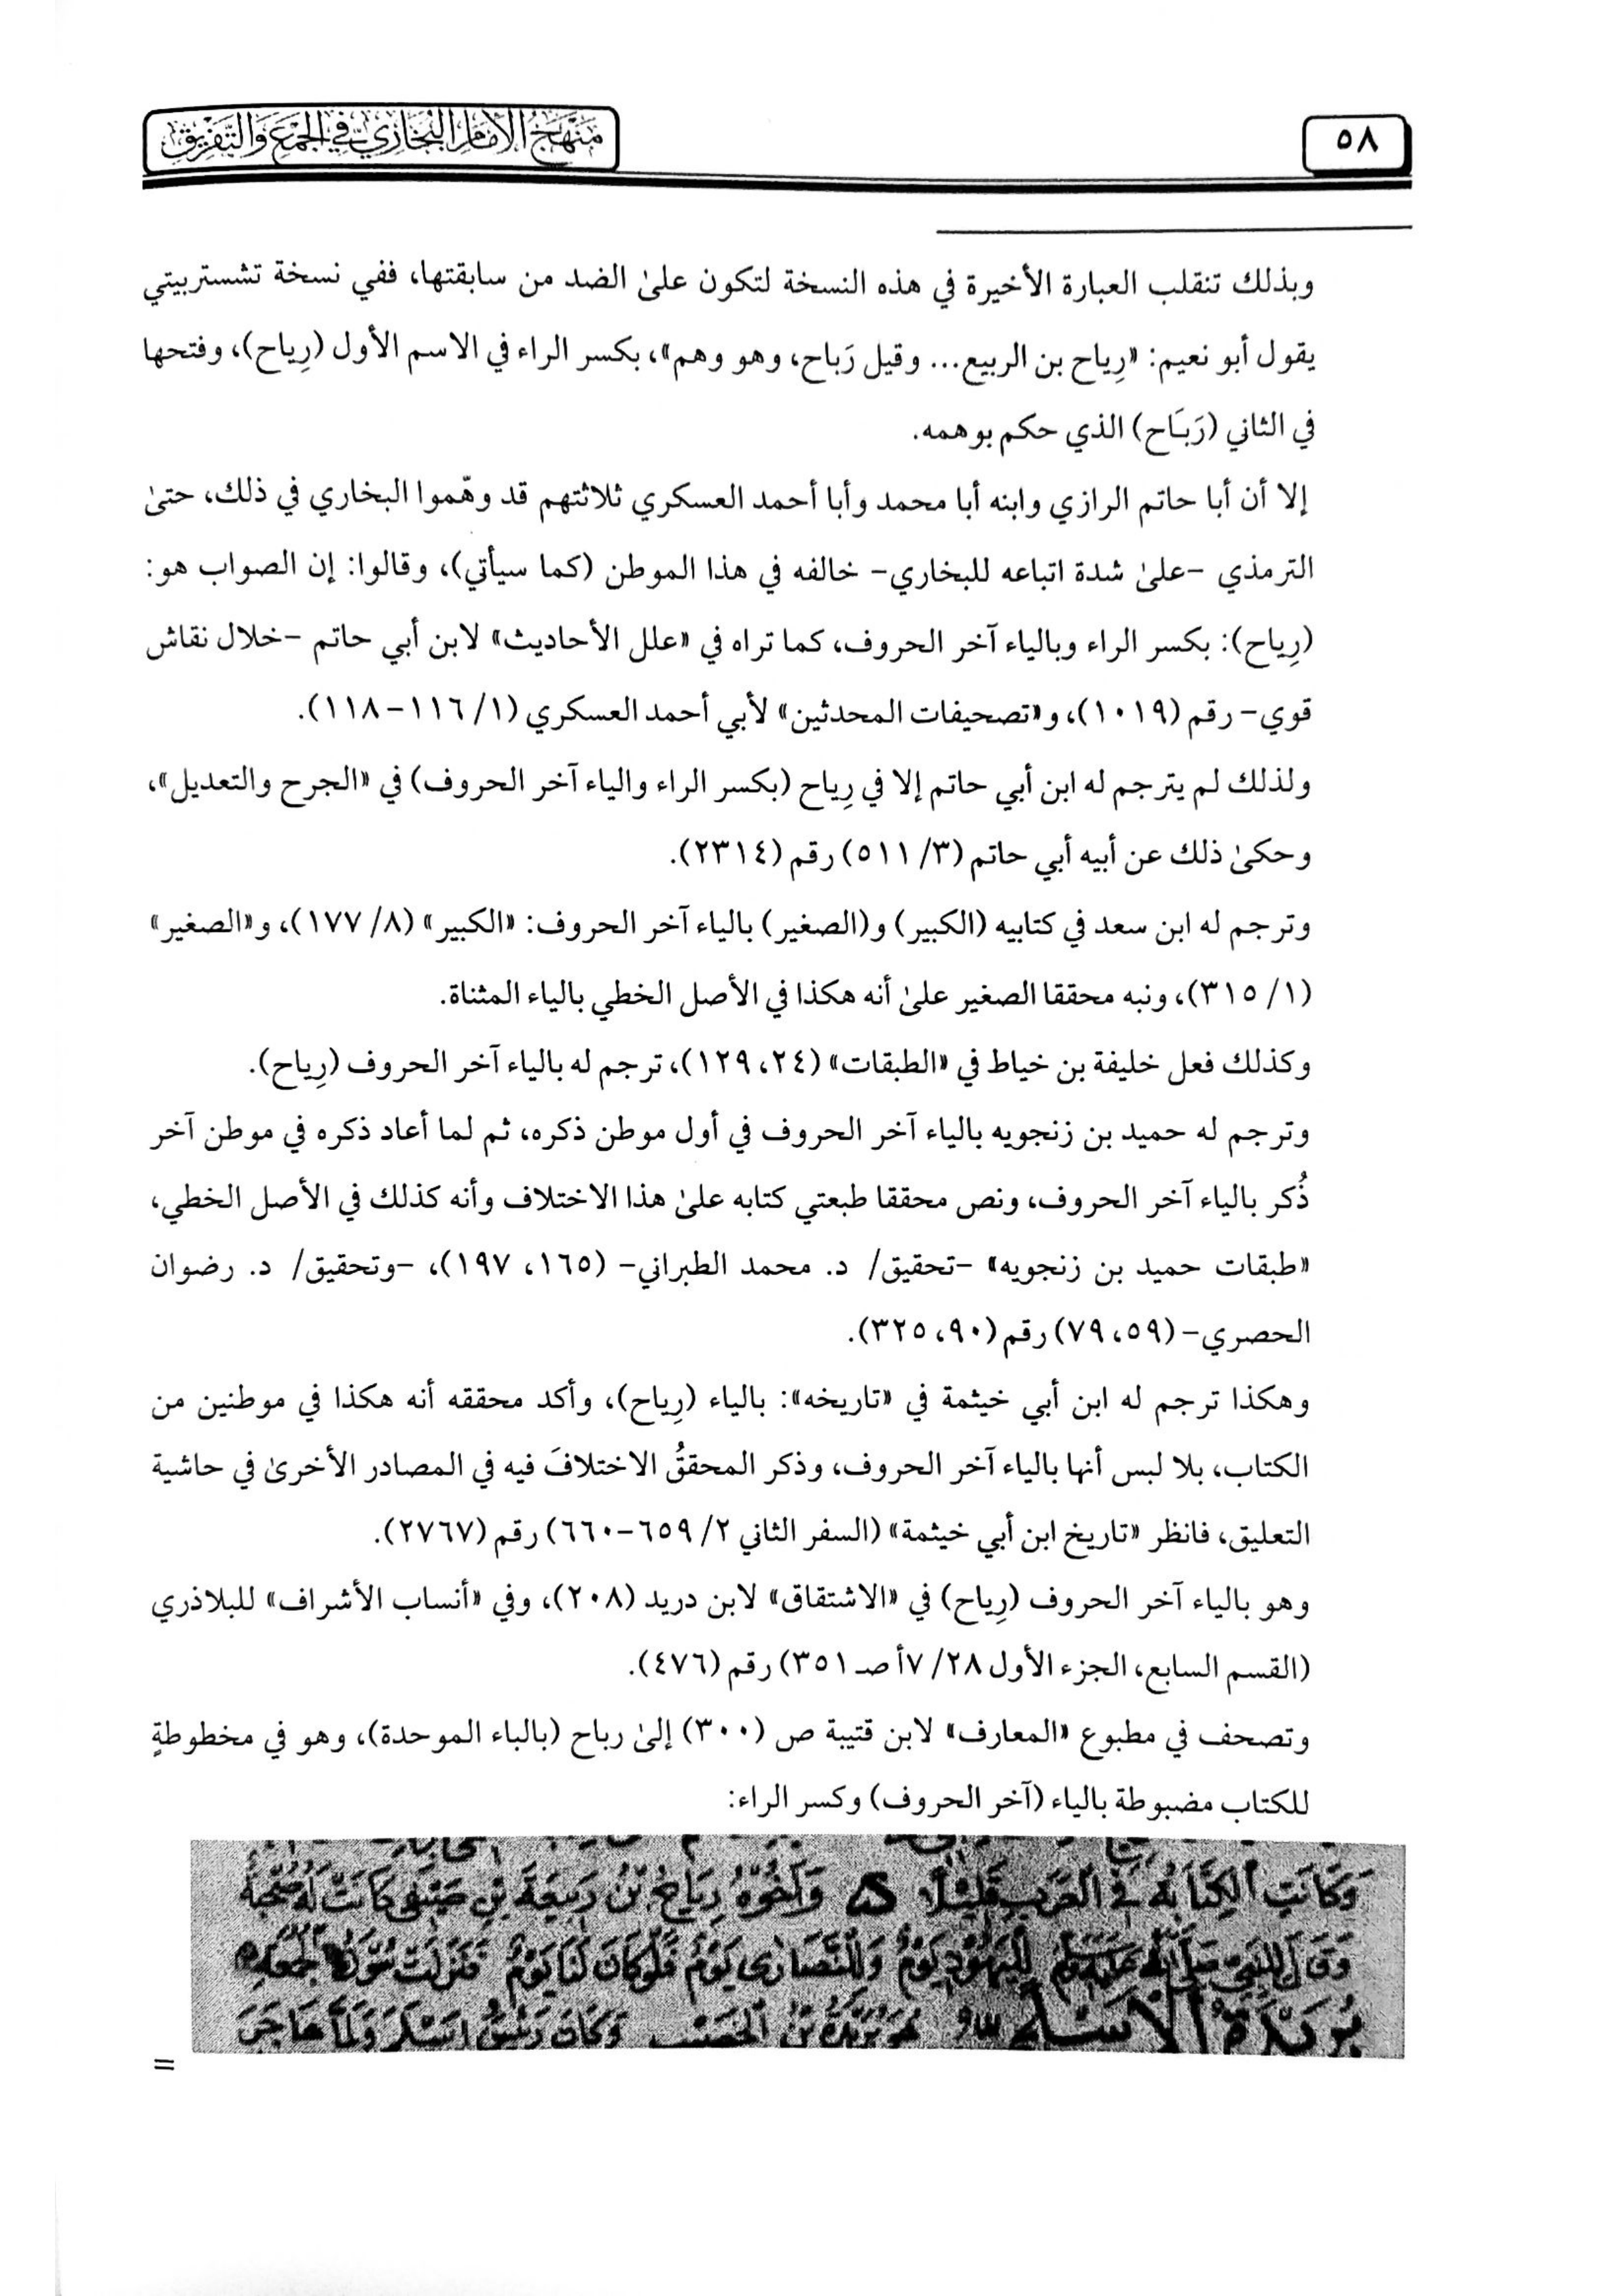 ٥٨
مَنْهَجُ الإِمَامِ البُخَارِيِّ فِي الجَمْعِ وَالتَّفْرِيقِ
وبذلك تنقلب العبارة الأخيرة في هذه النسخة لتكون علىٰ الضد من سابقتها، ففي نسخة تشستربيتي
يقول أبو نعيم: «رِياح بن الربيع... وقيل رَباح، وهو وهم»، بكسر الراء في الاسم الأول (رِياح)، وفتحها
في الثاني (رَبَاح) الذي حكم بوهمه.
إلا أن أبا حاتم الرازي وابنه أبا محمد وأبا أحمد العسكري ثلاثتهم قد وهّموا البخاري في ذلك، حتىٰ
الترمذي -علىٰ شدة اتباعه للبخاري- خالفه في هذا الموطن (كما سيأتي)، وقالوا: إن الصواب هو:
(رِياح): بكسر الراء وبالياء آخر الحروف، كما تراه في «علل الأحاديث» لابن أبي حاتم -خلال نقاش
قوي- رقم (١٠١٩)، و«تصحيفات المحدثين» لأبي أحمد العسكري (١/ ١١٦-١١٨).
ولذلك لم يترجم له ابن أبي حاتم إلا في رِياح (بكسر الراء والياء آخر الحروف) في «الجرح والتعديل»،
وحكىٰ ذلك عن أبيه أبي حاتم (٣/ ٥١١) رقم (٢٣١٤).
وترجم له ابن سعد في كتابيه (الكبير) و(الصغير) بالياء آخر الحروف: «الكبير» (٨/ ١٧٧)، و«الصغير»
(١/ ٣١٥)، ونبه محققا الصغير علىٰ أنه هكذا في الأصل الخطي بالياء المثناة.
وكذلك فعل خليفة بن خياط في «الطبقات» (٢٤، ١٢٩)، ترجم له بالياء آخر الحروف (رِياح).
وترجم له حميد بن زنجويه بالياء آخر الحروف في أول موطن ذكره، ثم لما أعاد ذكره في موطن آخر
ذُكر بالياء آخر الحروف، ونص محققا طبعتي كتابه علىٰ هذا الاختلاف وأنه كذلك في الأصل الخطي،
«طبقات حميد بن زنجويه» -تحقيق/ د. محمد الطبراني- (١٦٥، ١٩٧)، -وتحقيق/ د. رضوان
الحصري- (٥٩، ٧٩) رقم (٩٠، ٣٢٥).
وهكذا ترجم له ابن أبي خيثمة في «تاريخه»: بالياء (رِياح)، وأكد محققه أنه هكذا في موطنين من
الكتاب، بلا لبس أنها بالياء آخر الحروف، وذكر المحققُ الاختلافَ فيه في المصادر الأخرىٰ في حاشية
التعليق، فانظر «تاريخ ابن أبي خيثمة» (السفر الثاني ٢/ ٦٥٩-٦٦٠) رقم (٢٧٦٧).
وهو بالياء آخر الحروف (رِياح) في «الاشتقاق» لابن دريد (٢٠٨)، وفي «أنساب الأشراف» للبلاذري
(القسم السابع، الجزء الأول ٢٨/ ٧أ صـ ٣٥١) رقم (٤٧٦).
وتصحف في مطبوع «المعارف» لابن قتيبة ص (٣٠٠) إلىٰ رباح (بالباء الموحدة)، وهو في مخطوطةٍ
للكتاب مضبوطة بالياء (آخر الحروف) وكسر الراء:
وَكَانَتِ الكِتَابَةُ في العَرَبِ قَلِيْلًا وَأَخُوْهُ رِيَاحُ بْنُ رَبِيْعَةَ بْنِ صَيْفي كَانَتْ لَهُ صُحْبَةٌ
وَقَالَ للنَّبِيّ صَلَّى اللهُ عَلَيْهِ وَسَلَّمَ لِليَهُوْدِ يَوْمٌ وَللنَّصَارى يَوْمٌ فَلَوْ كَانَ لَنَا يَوْمٌ فَنَزَلَتْ سُوْرَةُ الجُمُعَةِ
بُرَيْدَةُ الأَسْلَمي هُوَ بُرَيْدَةُ بْنُ الحُصَيْبِ وَكَانَ رَئِيْسَ أَسْلَمَ وَلَمَّا هَاجَرَ
=